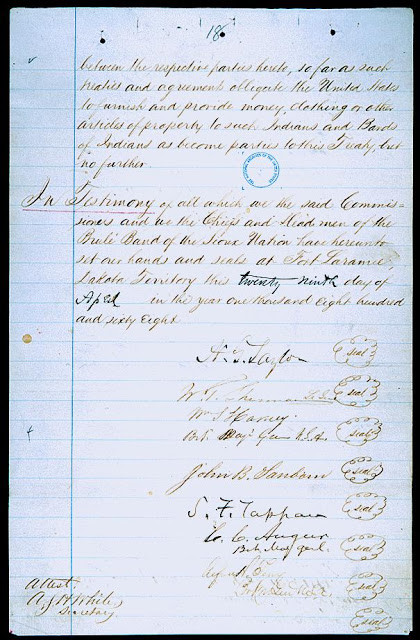 18
between the respective parties hereto, so far as such
treaties and agreements obligate the United States
to furnish and provide money, clothing or other
articles of property to such Indians and Bands
of Indians as become parties to this Treaty, but
no further.
In Testimony of all which we the said Commis-
sioners and we the Chiefs and Headmen of the
Brulé Band of the Sioux Nation have hereunto
set our hands and seals at Fort Laramie,
Dakota Territory this twenty ninth day of
April in the year one thousand Eight hundred
and sixty Eight
N. G. Taylor (seal)
W. T. Sherman Lt Gen (seal)
Wm S Harney (seal)
Bvt Maj Gen U.S.A.
John B. Sanborn (seal)
S. F. Tappan (seal)
C. C. Augur (seal)
Bvt. Maj. Genl.
(seal)
Attest.
A. S. H. White,
Secretary
(seal)